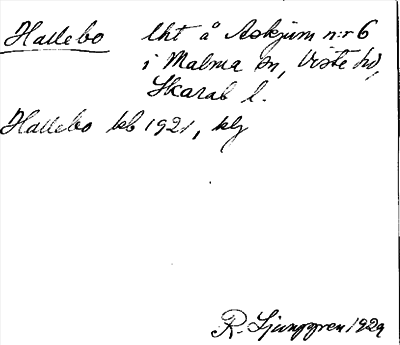 Hallebo lht å Askjum n:r 6
i Malma sn, Viste hd,
Skarab l.
Hallebo kb 1921, klj
R. Ljunggren 1929